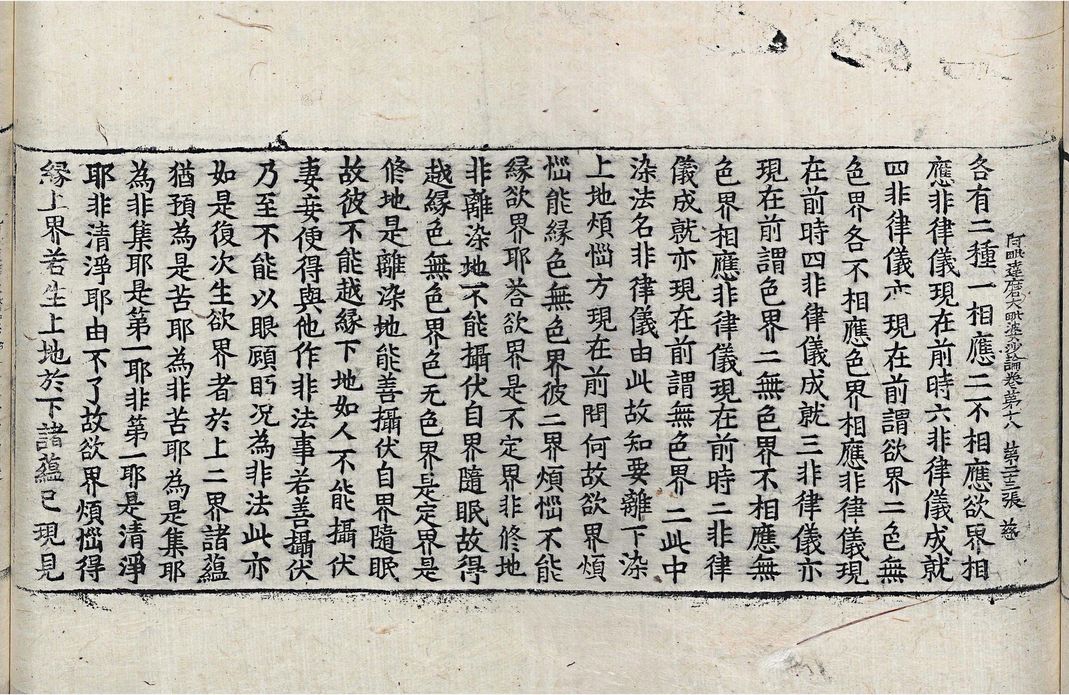 阿毗達磨大毗婆沙論卷第十八 第二十三張 慈
各有二種一相應二不相應欲界相
應非律儀現在前時六非律儀成就
四非律儀亦現在前謂欲界二色無
色界各不相應色界相應非律儀現
在前時四非律儀成就三非律儀亦
現在前謂色界二無色界不相應無
色界相應非律儀現在前時二非律
儀成就亦現在前謂無色界二此中
染法名非律儀由此故知要離下染
上地煩惱方現在前問何故欲界煩
惱能緣色無色界彼二界煩惱不能
緣欲界耶荅欲界是不定界非修地
非離染地不能攝伏自界隨眠故得
越緣色無色界色无色界是定界是
修地是離染地能善攝伏自界隨眠
故彼不能越緣下地如人不能攝伏
妻妾便得與他作非法事若善攝伏
乃至不能以眼顧眄况為非法此亦
如是復次生欲界者於上二界諸蘊
猶預為是苦耶為非苦耶為是集耶
為非集耶是第一耶非第一耶是清淨
耶非清淨耶由不了故欲界煩惱得
緣上界若生上地於下諸蘊已現見